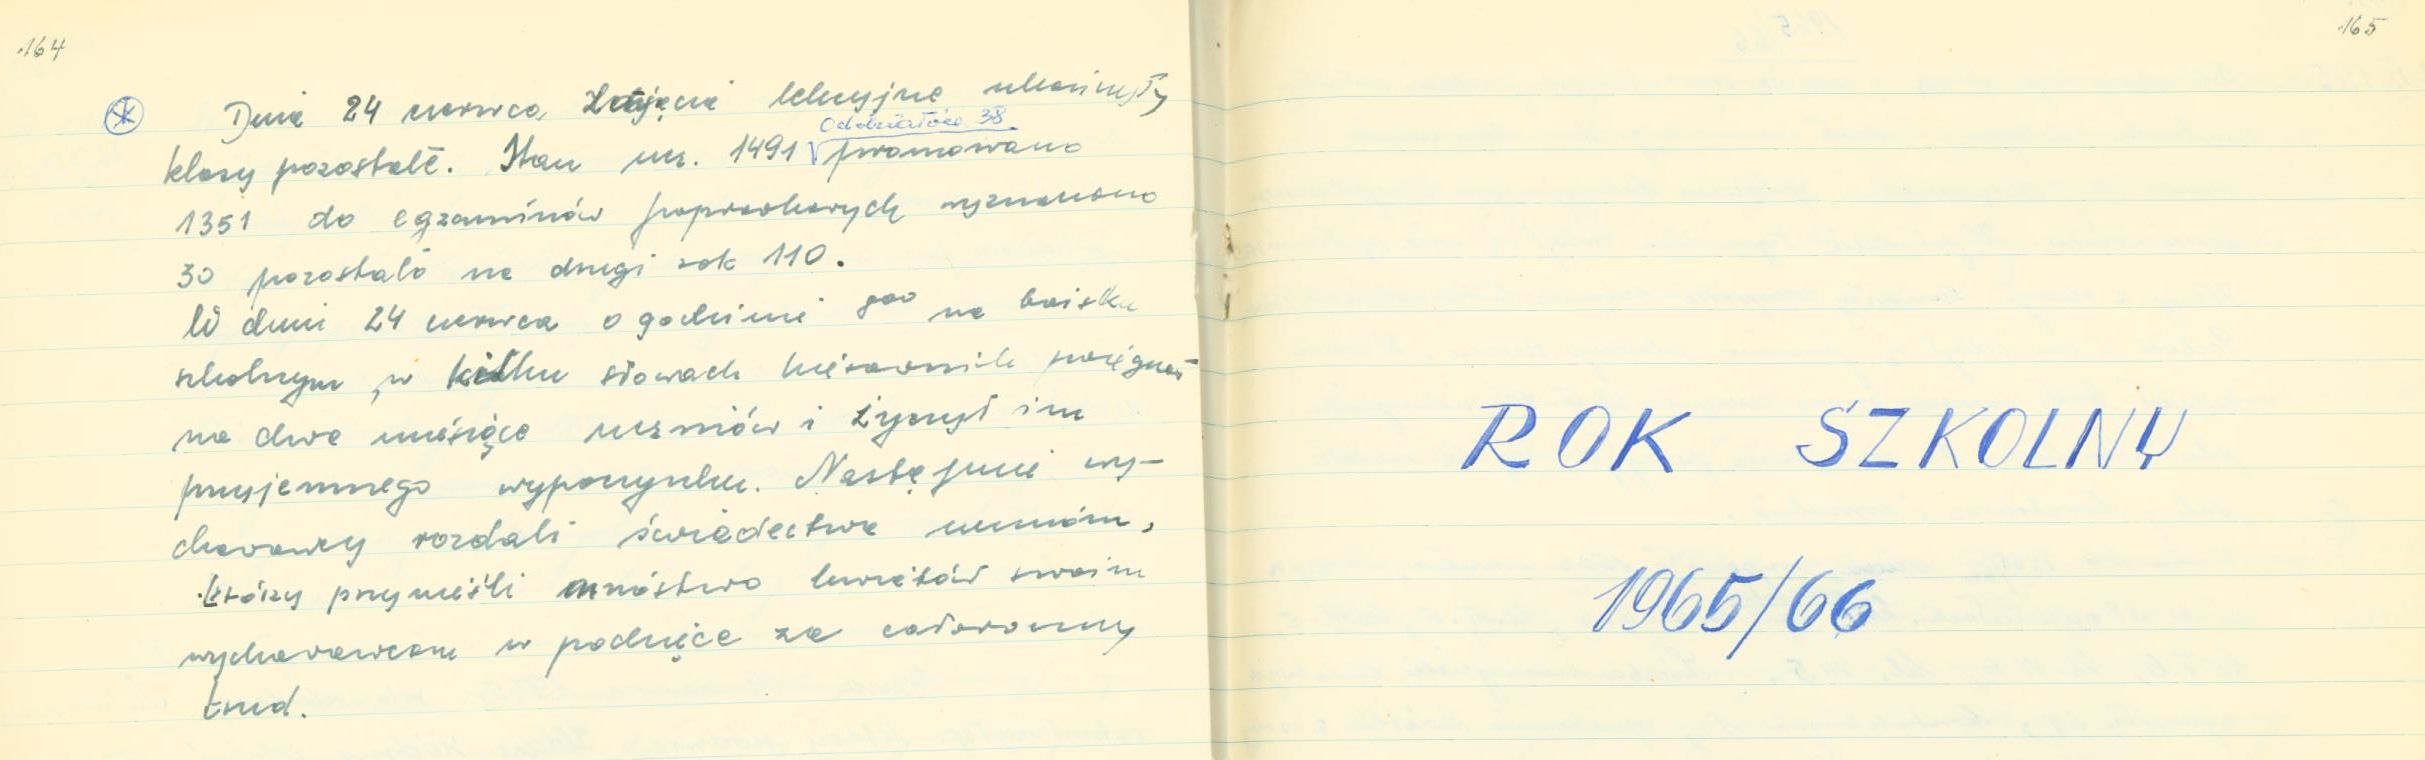 164
Dnia 24 czerwca zajęcia lekcyjne ukończyły
Oddziałów 38
klasy pozostałe. Stan ucz. 1491 promowano
1351 do egzaminów poprawkowych wyznaczono
30 pozostało na drugi rok 110.
W dniu 24 czerwca o godzinie 9oo na boisku
szkolnym, w kilku słowach kierownik pożegnał
na dwa miesiące uczniów i życzył im
przyjemnego wypoczynku. Następnie wy-
chowawcy rozdali świadectwa uczniom,
którzy przynieśli mnóstwo kwiatów swoim
wychowawcom w podzięce za całoroczny
trud.
165
ROK SZKOLNY
1965/66